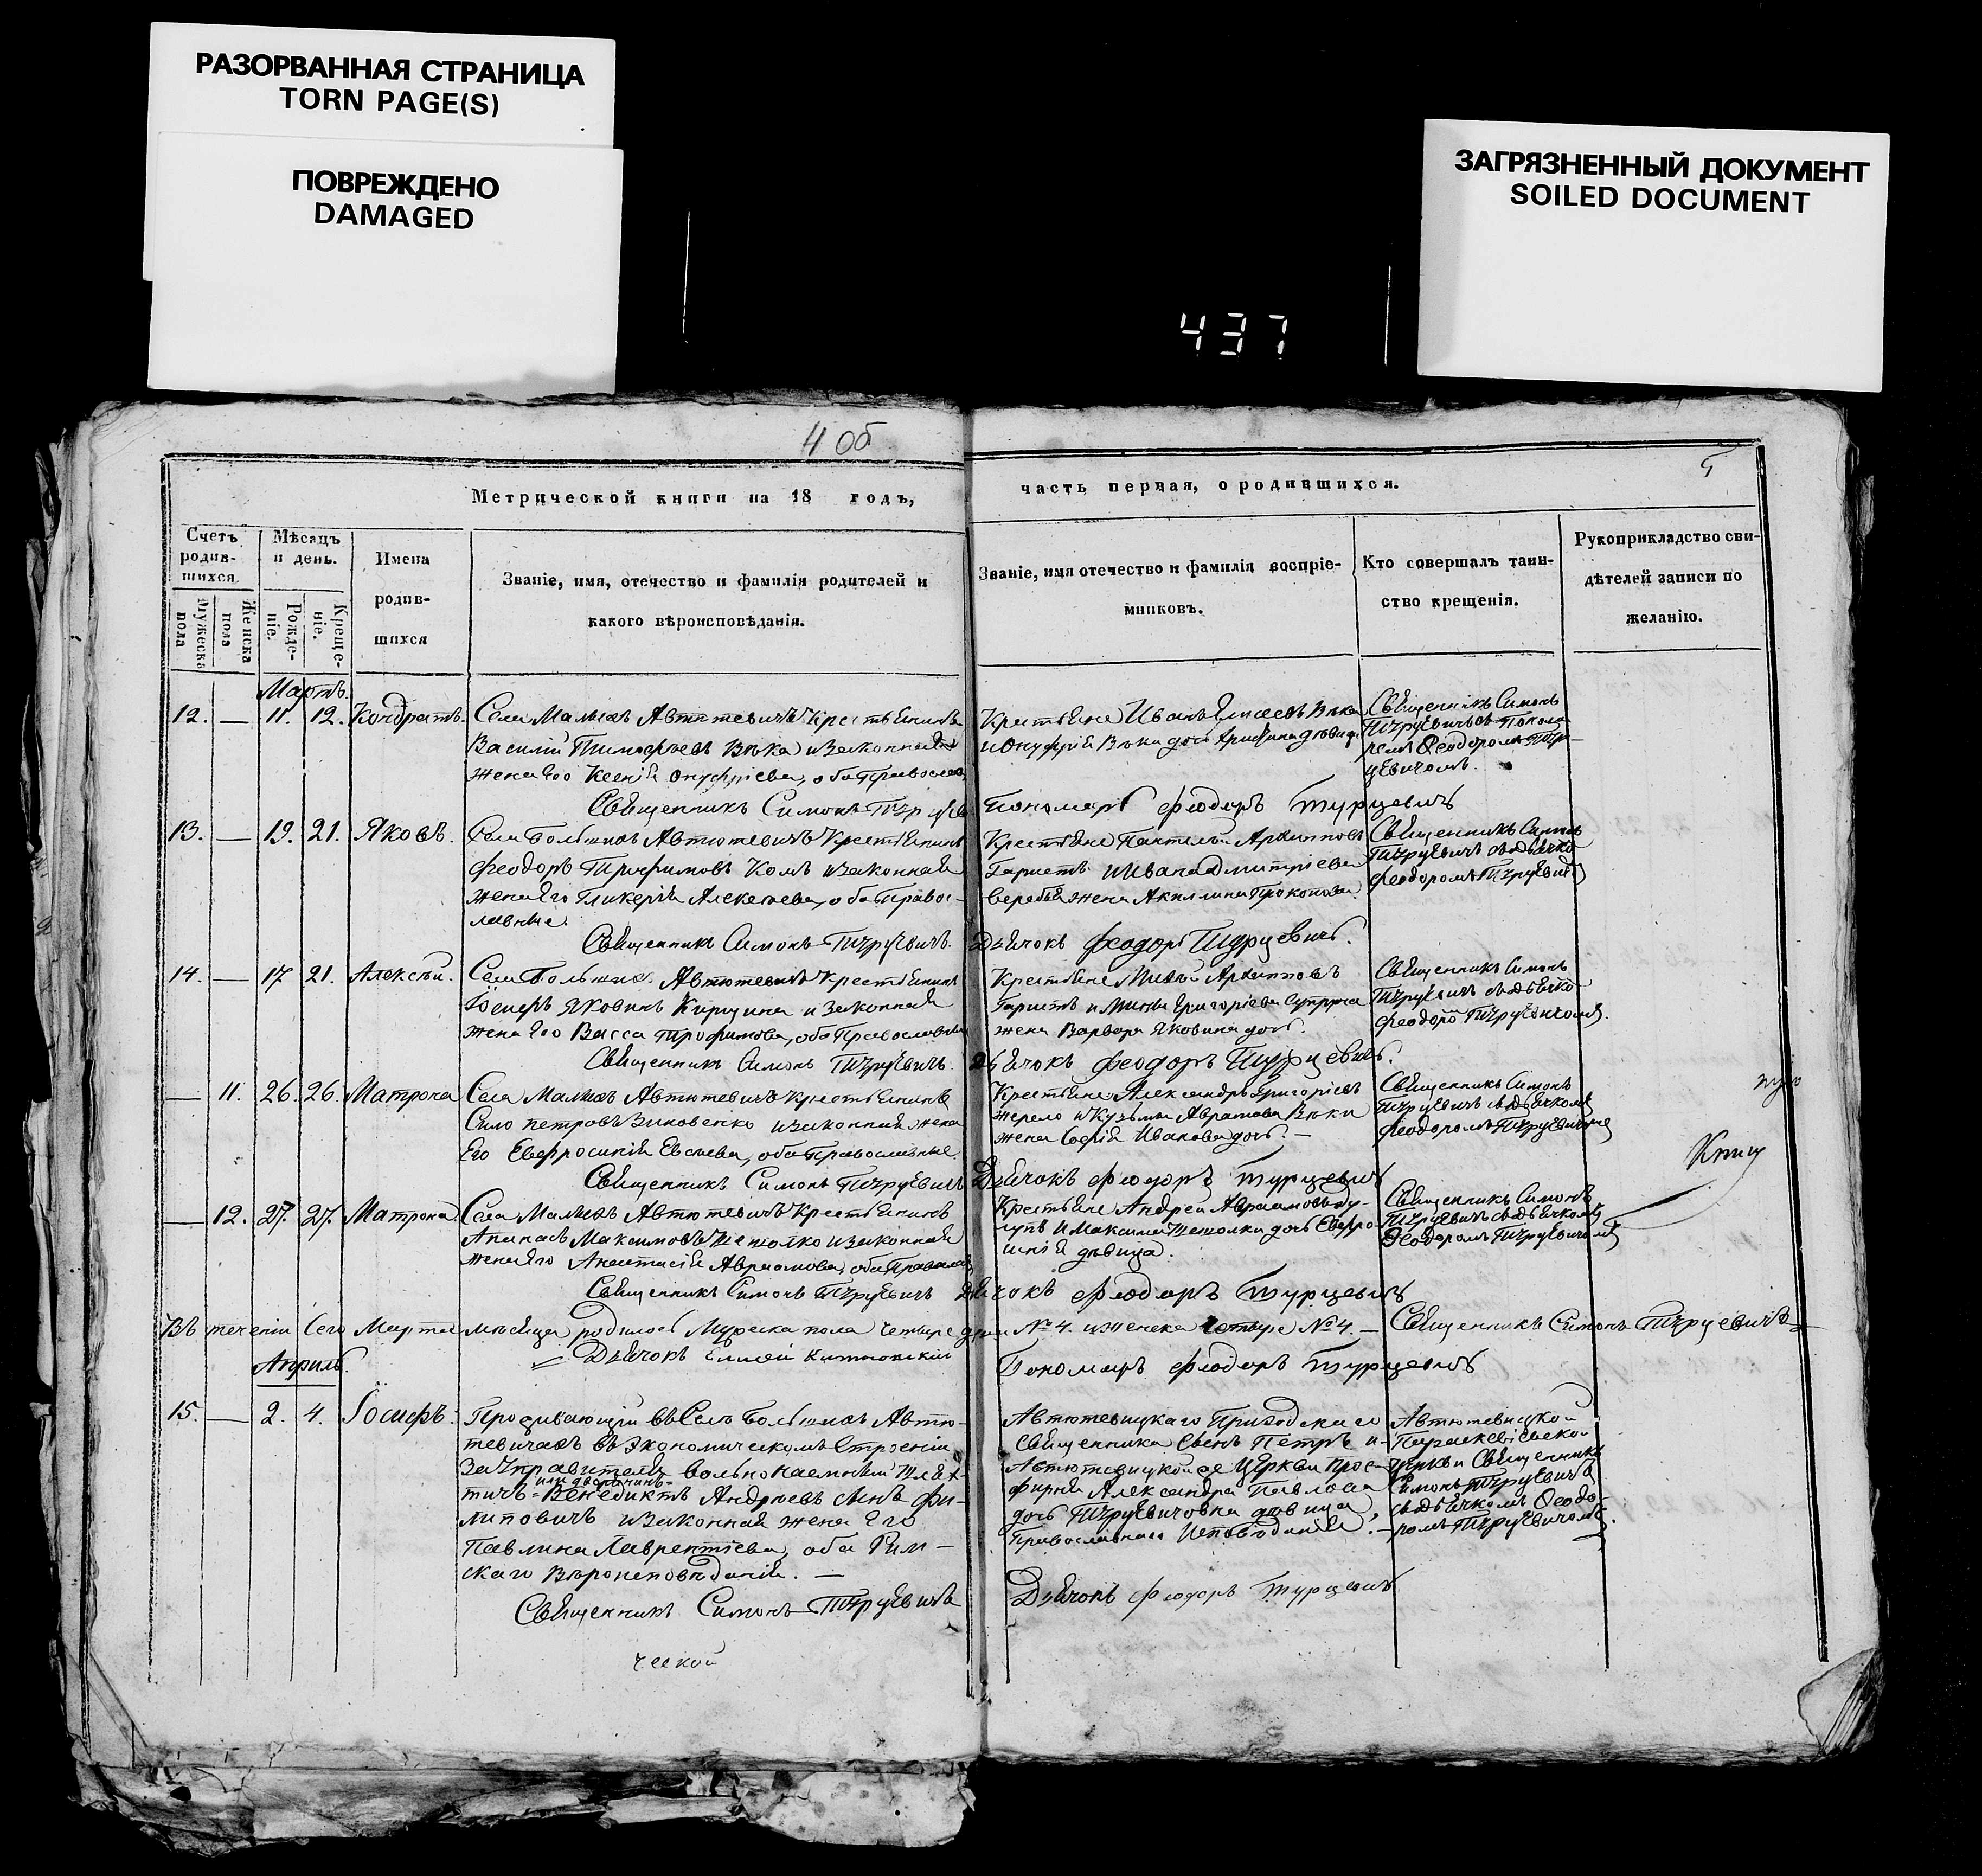 РАЗОРВАННАЯ СТРАНИЦА
TORN PAGE(S)
ПОВРЕЖДЕНО
DAMAGED
ЗАГРЯЗНЕННЫЙ ДОКУМЕНТ
SOILED DOCUMENT
437
4 об
5
Метрической книги на 18 годъ,
часть первая, о родившихся.
Счетъ родив-шихся.
Мужеска пола
Женска пола
Мѣсяцъ и день.
Рожде-ніе.
Креще-ніе.
Имена
родив-
шихся
Званіе, имя, отечество и фамилія родителей и
какого вѣроисповѣданія.
Званіе, имя отечество и фамилія воспріе-
мниковъ.
Кто совершалъ таин-
ство крещенія.
Рукоприкладство сви-
дѣтелей записи по
желанію.
Мартъ.
12. — 11. 12. Кондратъ.
Села Малыхъ Автютевичъ Крестьянинъ
Василій Тимофѣевъ Вѣка и законная
жена его Ксенія Онуфріева, оба Православ
Священникъ Симонъ Турцев
Крестьяне Иванъ Елисеевъ Вѣка
и Онуфрія Вѣки дочь девица
Священникъ Симонъ
Турцевичъ съ Понома
ремъ Феодоромъ Тур
цевичомъ.
Пономарь Феодоръ Турцевичъ
13. — 19. 21. Яковъ.
Села Большихъ Автютевичъ Крестьянинъ
Феодоръ Трофимовъ Комъ и законная
жена его Гликерія Алексеева, оба Правос-
лавные.
Священникъ Симонъ Турцевичъ.
Крестьяне Пантелей Архиповъ
и Ивана Дмитріева
жена Акилина Прокопова
Священникъ Симонъ
Турцевичъ съ дьячко
Феодоромъ Турцевич
Дьячокъ Феодоръ Турцевичъ.
14. — 17 21. Алексѣй.
Села Большихъ Автютевичъ Крестьянинъ
Іосифъ Яковинъ и законная
жена его Васса Трофимова, оба Православны
Священникъ Симонъ Турцевичъ.
Крестьяне Архиповъ
и Григоріева
жена Варвара Яковина дочь.
Священникъ Симонъ
Турцевичъ съ дьячко
Феодоро Турцевичомъ.
Дьячокъ Феодоръ Турцевичъ.
— 11. 26. 26. Матрона
Села Малыхъ Автютевичъ Крестьянинъ
Сило Петровъ Зиновенко и законная жена
Его Евфросинія Евсеева, оба Православные.
Священникъ Симонъ Турцевичъ
Крестьяне Александръ Григоріевъ
Жерело и Кузьмы Авраамова Вѣки
жена Софія Иванова дочь. —
Священникъ Симонъ
Турцевичъ съ дьячкомъ
Феодоромъ Турцевичомъ
Дьячокъ Феодоръ Турцевичъ
— 12. 27. 27. Матрона.
Села Малыхъ Автютевичъ Крестьянинъ
Апанасъ Максимовъ и законная
жена его Анастасія Авраамова, оба Правосла
Священникъ Симонъ Турцевичъ
Крестьяне Андрей Авраамовъ
и Максима дочь Евфро-
синія дѣвица.
Священникъ Симонъ
Турцевичъ съ дьячкомъ
Феодоромъ Турцевичомъ
Дьячокъ Феодоръ Турцевичъ
Въ теченіи Сего Марта мѣсяца родилось Мужеска пола Четыре души № 4. и женска Четыре № 4. — Священникъ Симонъ Турцевичъ
Дьячокъ Елисей
Пономарь Феодоръ Турцевичъ
Апрель
15. — 2. 4. Іосифъ.
Проживающій въ Селѣ Большихъ Автю-
тевичахъ въ Экономическомъ Строеніи
За Управителя вольнонаемный Шлях-
или дворянинъ
тичъ Венедиктъ Андреевъ сынъ Фи-
липовичъ и законная жена Его
Павлина Лаврентіева, оба Рим-
скаго Вѣроисповѣданія. —
Священникъ Симонъ Турцевичъ
Автютевицкаго Приходскаго
Священника сынъ Петръ и
Автютевицкой же Церкви Прос-
фирня Александра Павлова
дочь Турцевичовна дѣвица,
Православнаго Исповѣданія. —
Автютевицкой
Параскевіевско-
церкви Священникъ
Симонъ Турцевичъ
съ дьячкомъ Феодо-
ромъ Турцевичомъ.
Дьячокъ Феодоръ Турцевичъ
ческой